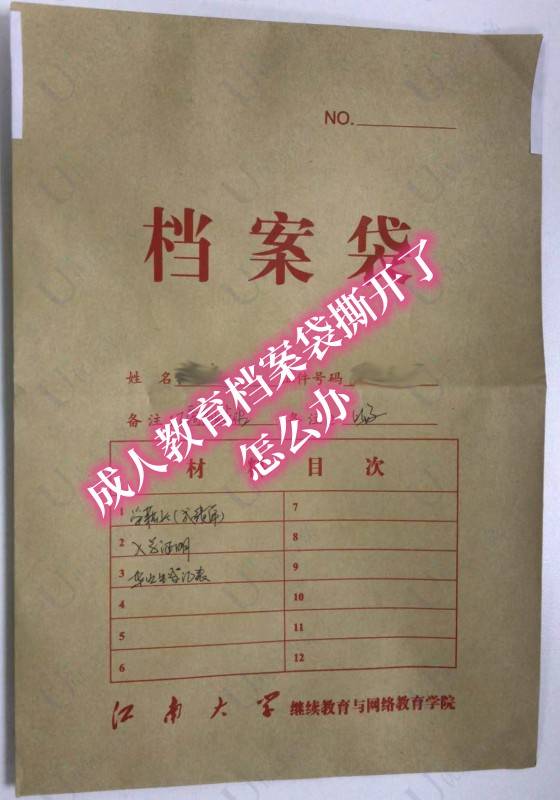 NO.
档案袋
成人教育档案袋撕开了
怎么办
姓 名 件号码
备注 备注
材 目次
1 学籍表(成绩单) 7
2 入学证明 8
3 毕业生登记表 9
4 10
5 11
6 12
江南大学 继续教育与网络教育学院